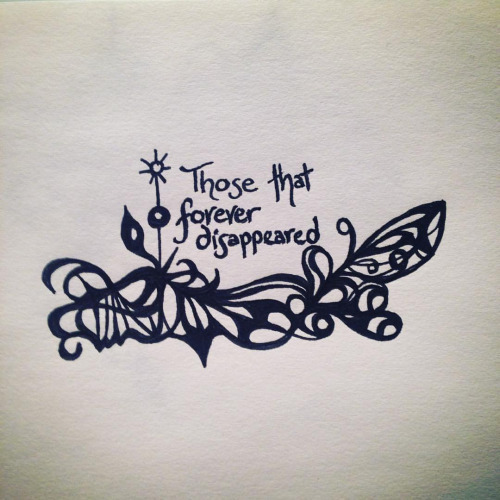 Those that
forever
disappeared